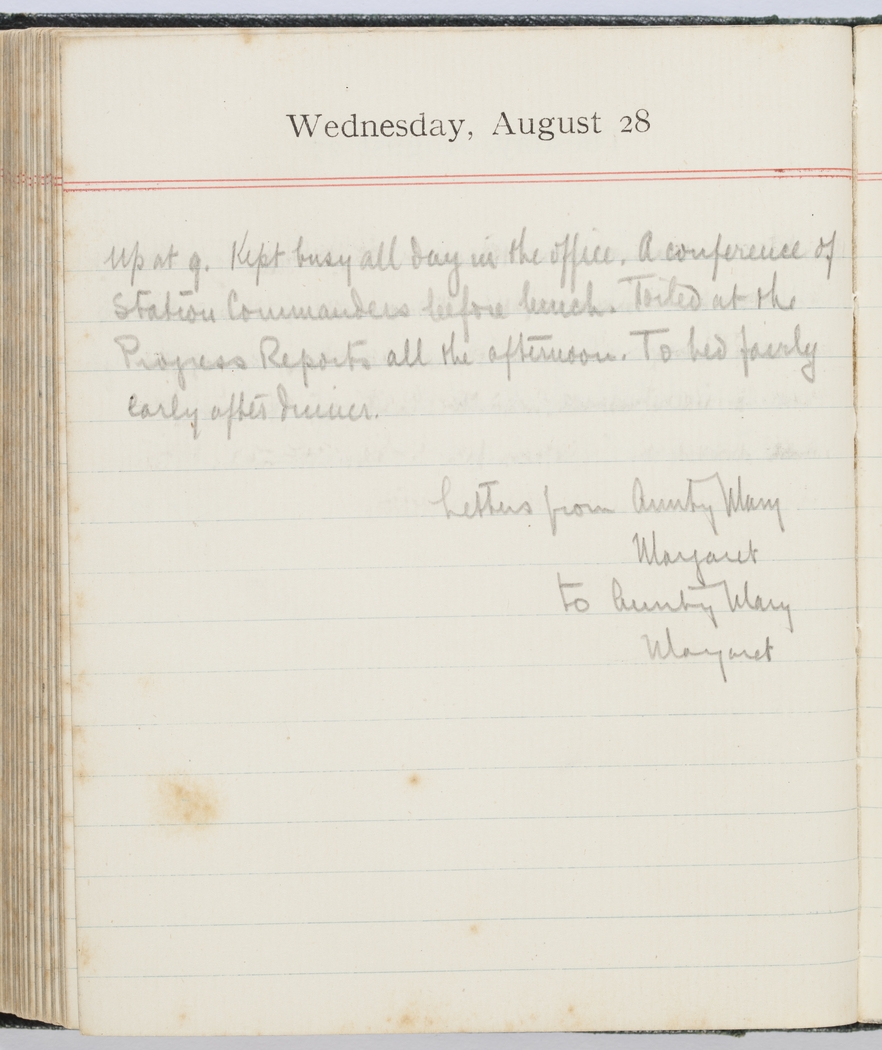 Wednesday, August 28
Up at 9. Kept busy all day in the office. A conference of
Station Commanders before lunch. Toiled at the
Progress Reports all the afternoon. To bed fairly
early after dinner.
Letters from Aunty Mary
Margaret
to Aunty Mary
Margaret